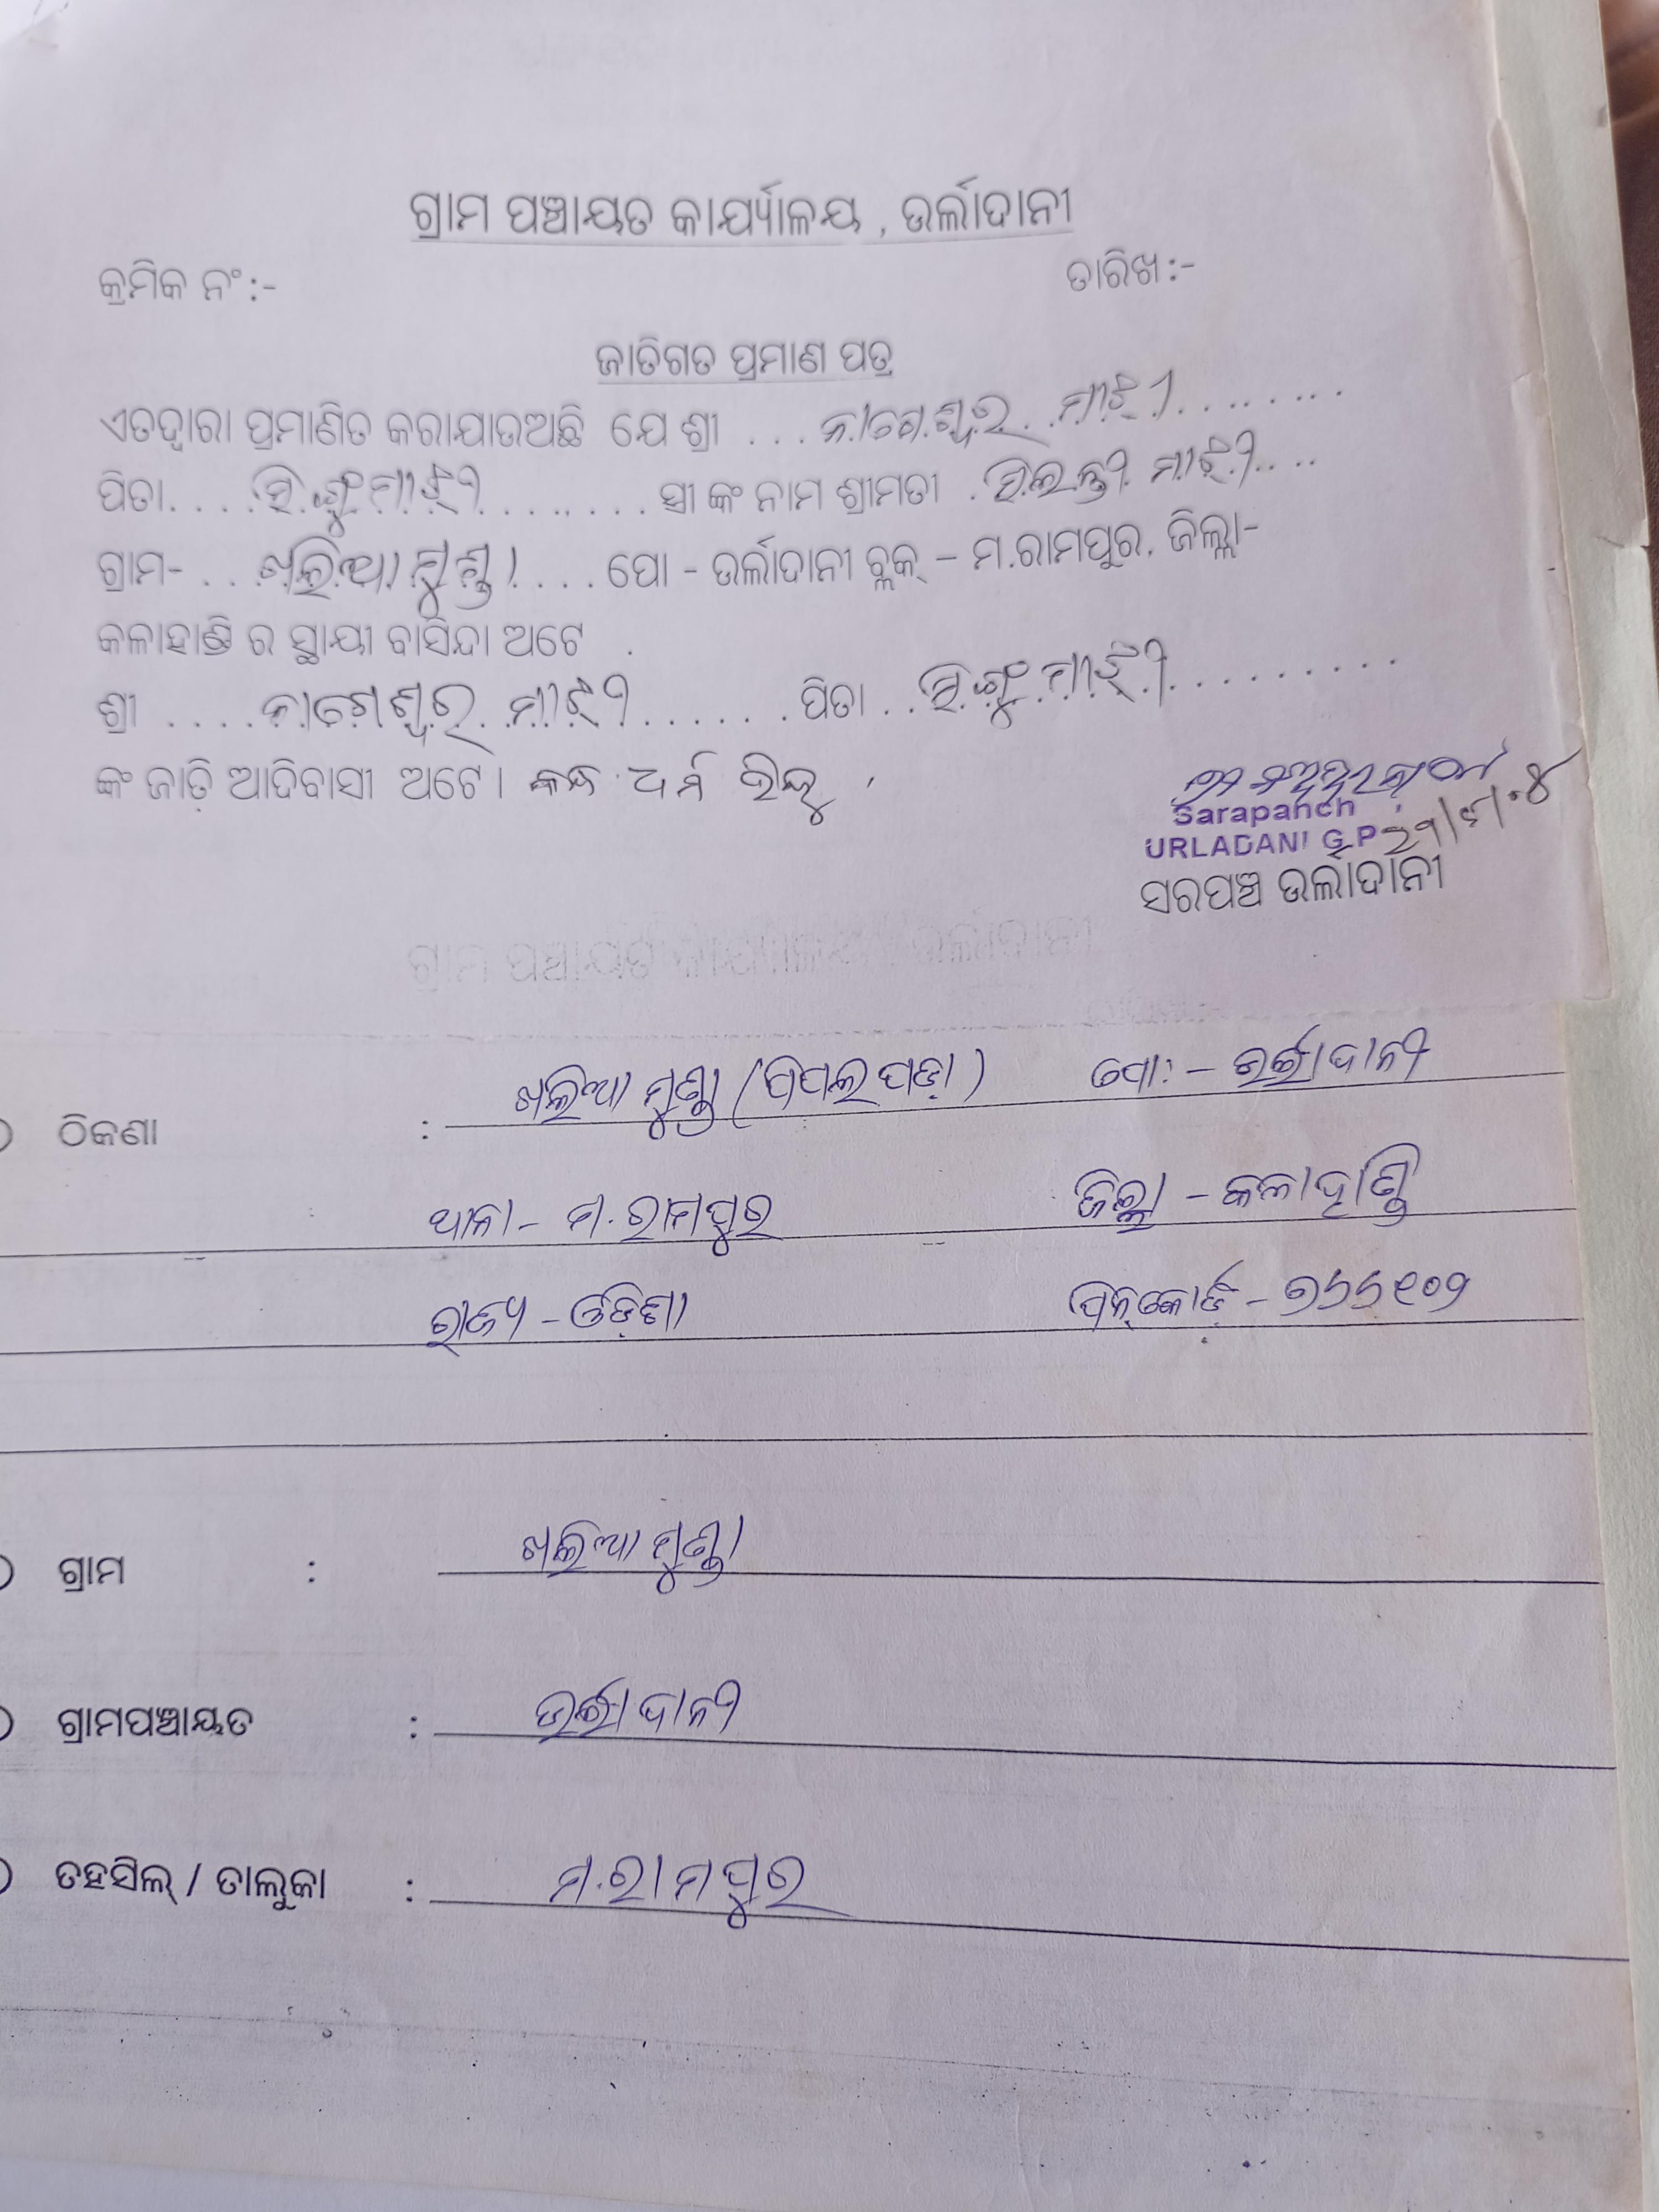 ଗ୍ରାମ ପଞ୍ଚାୟତ କାର୍ଯ୍ୟାଳୟ , ଉର୍ଲାଦାନୀ
କ୍ରମିକ ନଂ :- ତାରିଖ :-
ଜାତିଗତ ପ୍ରମାଣ ପତ୍ର
ଏତଦ୍ୱାରା ପ୍ରମାଣିତ କରାଯାଉଅଛି ଯେ ଶ୍ରୀ ... ନାଗେଶ୍ୱର ମାଝି .........
ପିତା..... ସିଙ୍ଗୁ ମାଝି ......... ସ୍ତ୍ରୀ ଙ୍କ ନାମ ଶ୍ରୀମତୀ . ମାଝି ....
ଗ୍ରାମ- .. ଖଲିଆମୁଣ୍ଡା .... ପୋ - ଉର୍ଲାଦାନୀ ବ୍ଲକ୍ – ମ.ରାମପୁର, ଜିଲ୍ଲା-
କଳାହାଣ୍ଡି ର ସ୍ଥାୟୀ ବାସିନ୍ଦା ଅଟେ .
ଶ୍ରୀ .... ନାଗେଶ୍ୱର ମାଝି ....... ପିତା .. ସିଙ୍ଗୁ ମାଝି ..........
ଙ୍କ ଜାତି ଆଦିବାସୀ ଅଟେ। କନ୍ଧ ଧର୍ମ ହିନ୍ଦୁ
Sarapanch
URLADANI G.P
ସରପଞ୍ଚ ଉର୍ଲାଦାନୀ
ଠିକଣା : ଖଲିଆମୁଣ୍ଡା (ପିପଲପଡ଼ା) ପୋ:- ଉର୍ଲାଦାନୀ
ଥାନା - ମ.ରାମପୁର ଜିଲ୍ଲା - କଳାହାଣ୍ଡି
ରାଜ୍ୟ - ଓଡ଼ିଶା ପିନ୍‌କୋଡ଼ - ୭୬୬୧୦୨
ଗ୍ରାମ : ଖଲିଆମୁଣ୍ଡା
ଗ୍ରାମପଞ୍ଚାୟତ : ଉର୍ଲାଦାନୀ
ତହସିଲ୍ / ତାଲୁକା : ମ.ରାମପୁର